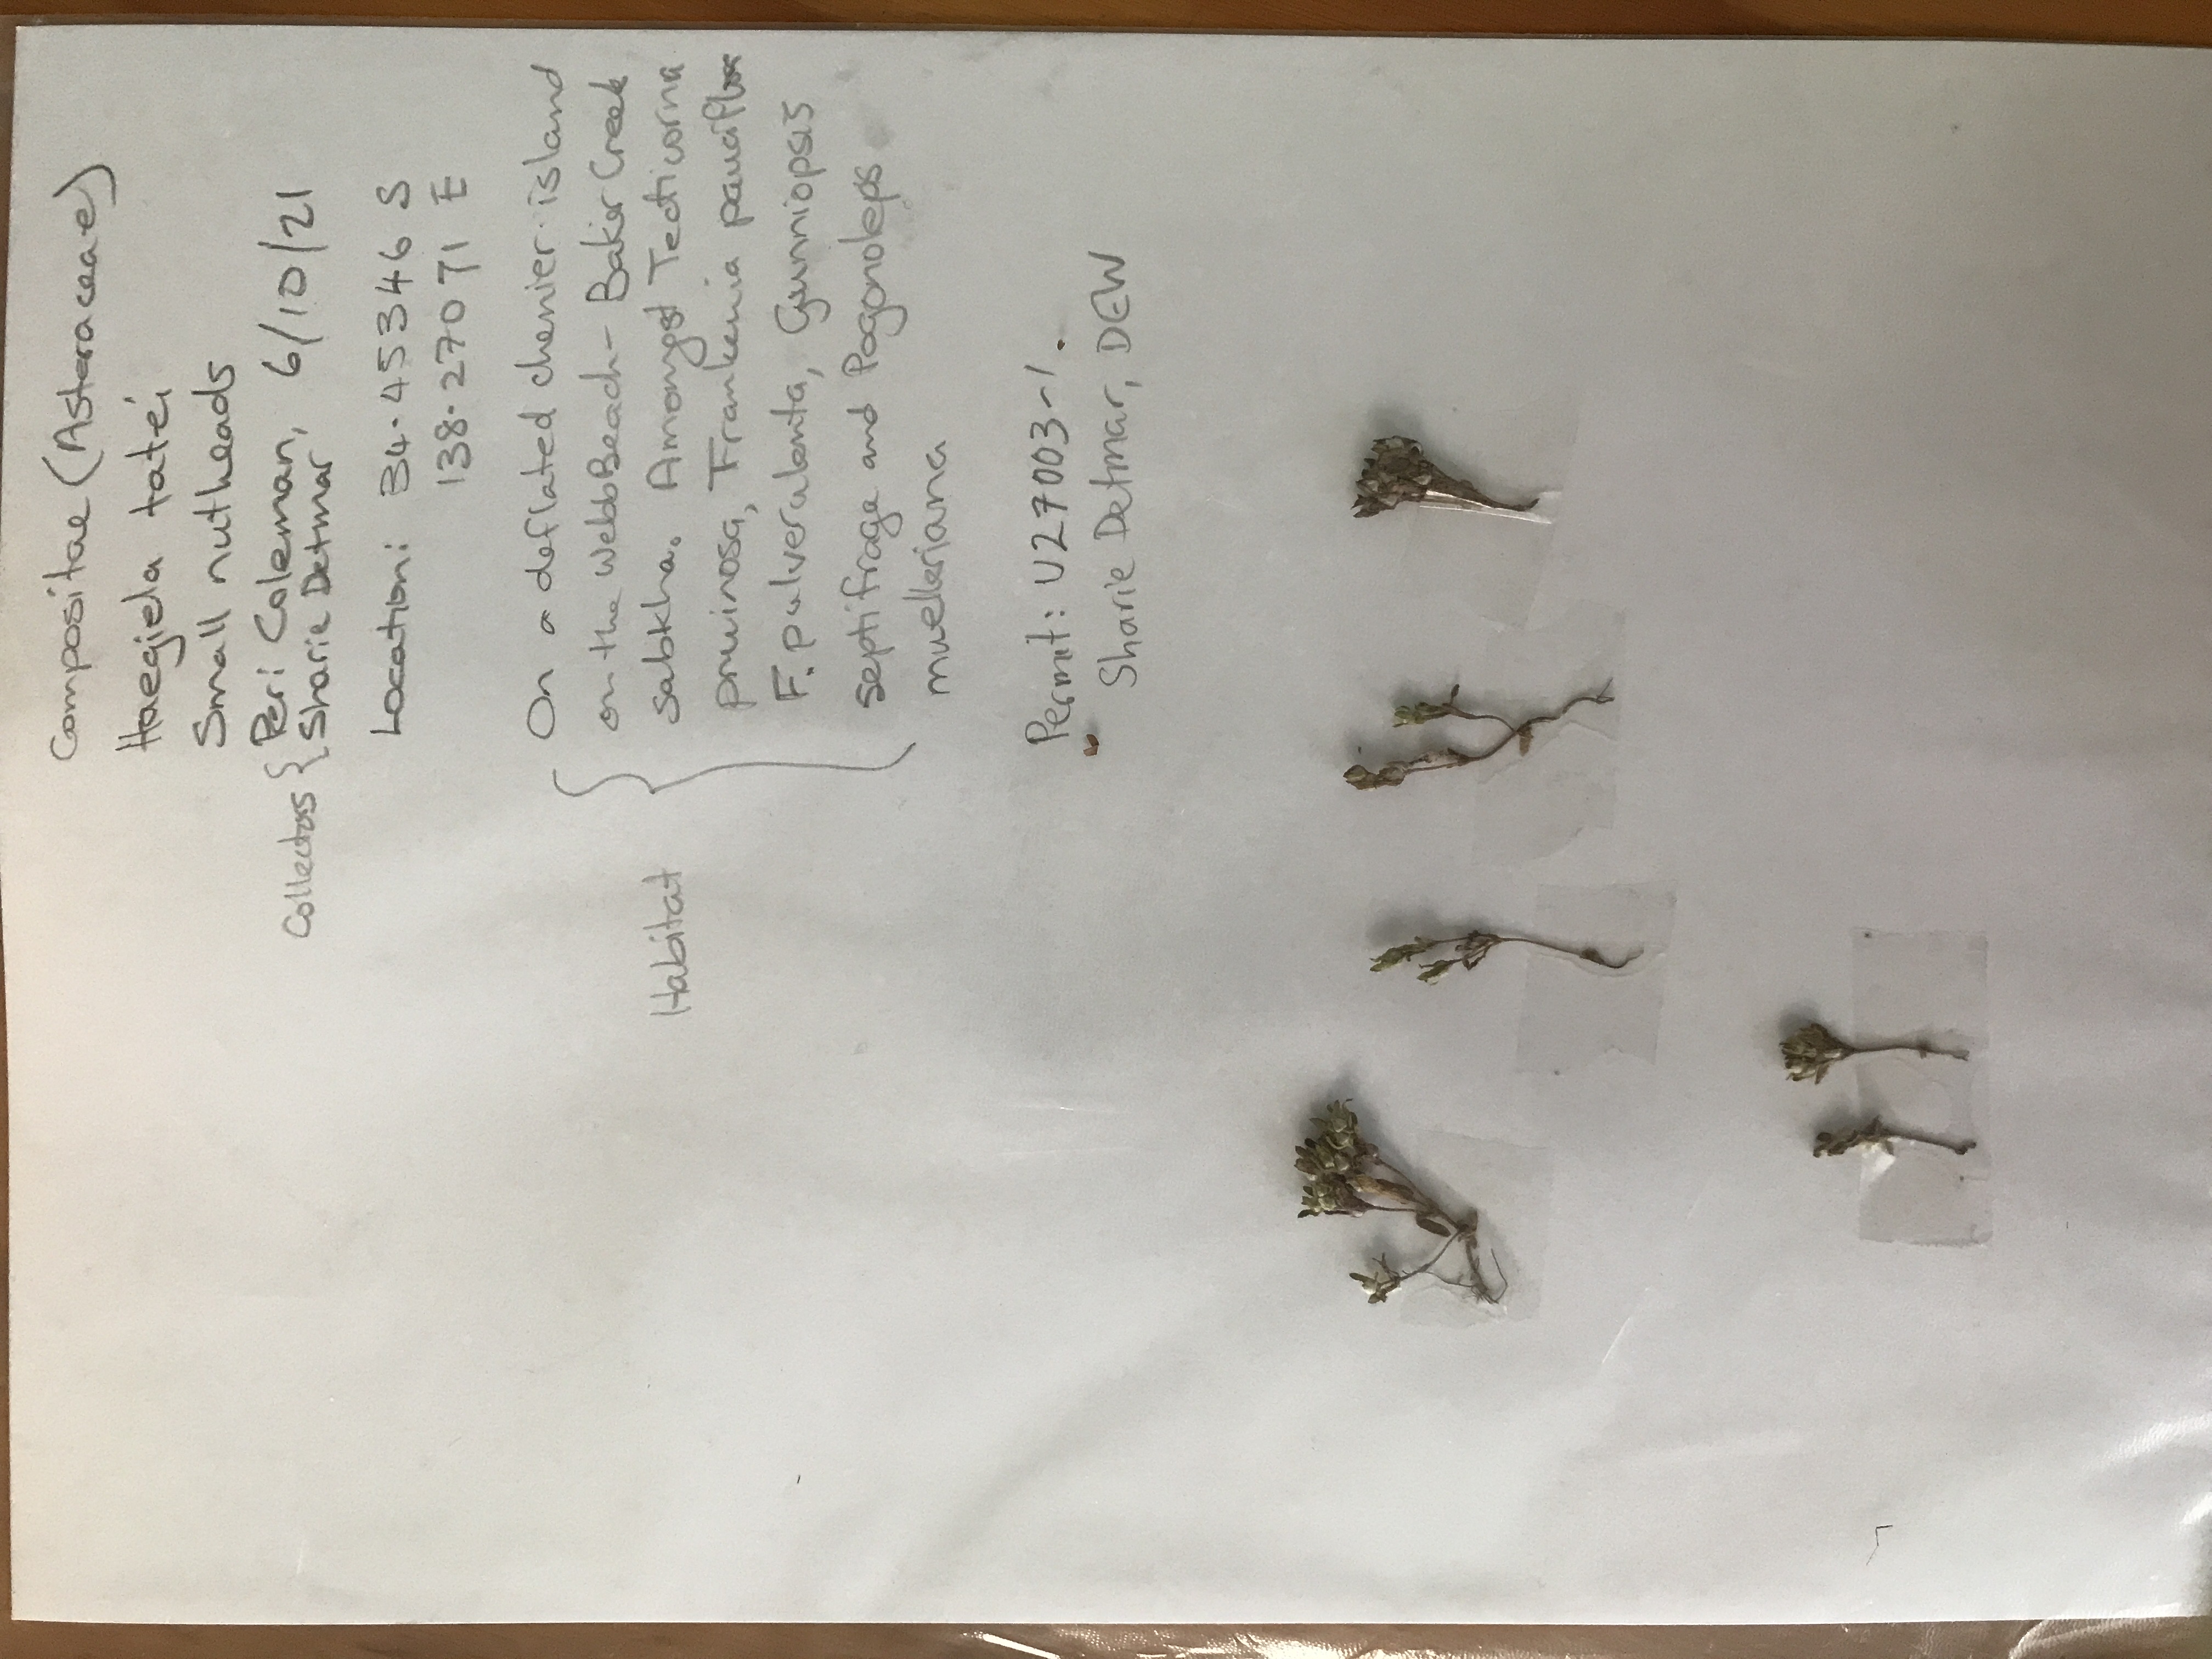 Compositae (Asteraceae)
Haegiela tatei
Small nutheads
Collectors { Peri Coleman, 6/10/21
Sharie Detmar
Location: 34.45346 S
138.27071 E
On a deflated chenier island
on the Webb Beach - Baker Creek
Habitat { sabkha. Amongst Tecticorna
pruinosa, Frankenia pauciflora
F. pulverulenta, Gunniopsis
septifraga and Pogonoleps
muelleriana
Permit: U27003-1.
Sharie Detmar, DEW